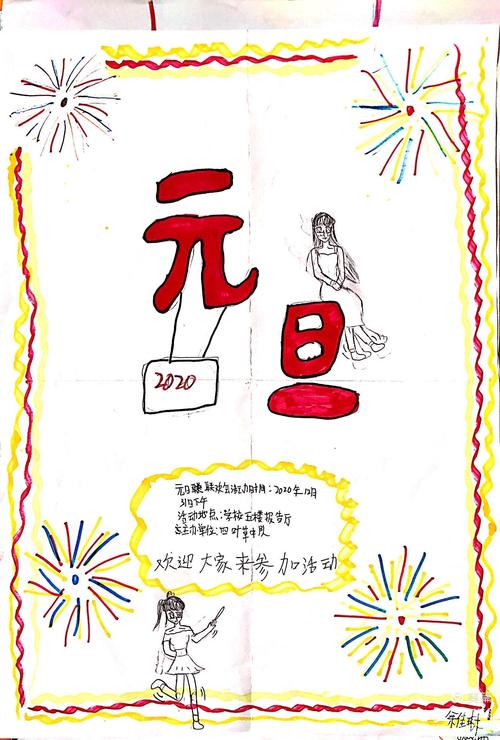 元旦
2020
元旦联欢会活动时间:2020年12月
31日下午
活动地点:学校五楼报告厅
主办单位:四叶草中队
欢迎大家来参加活动